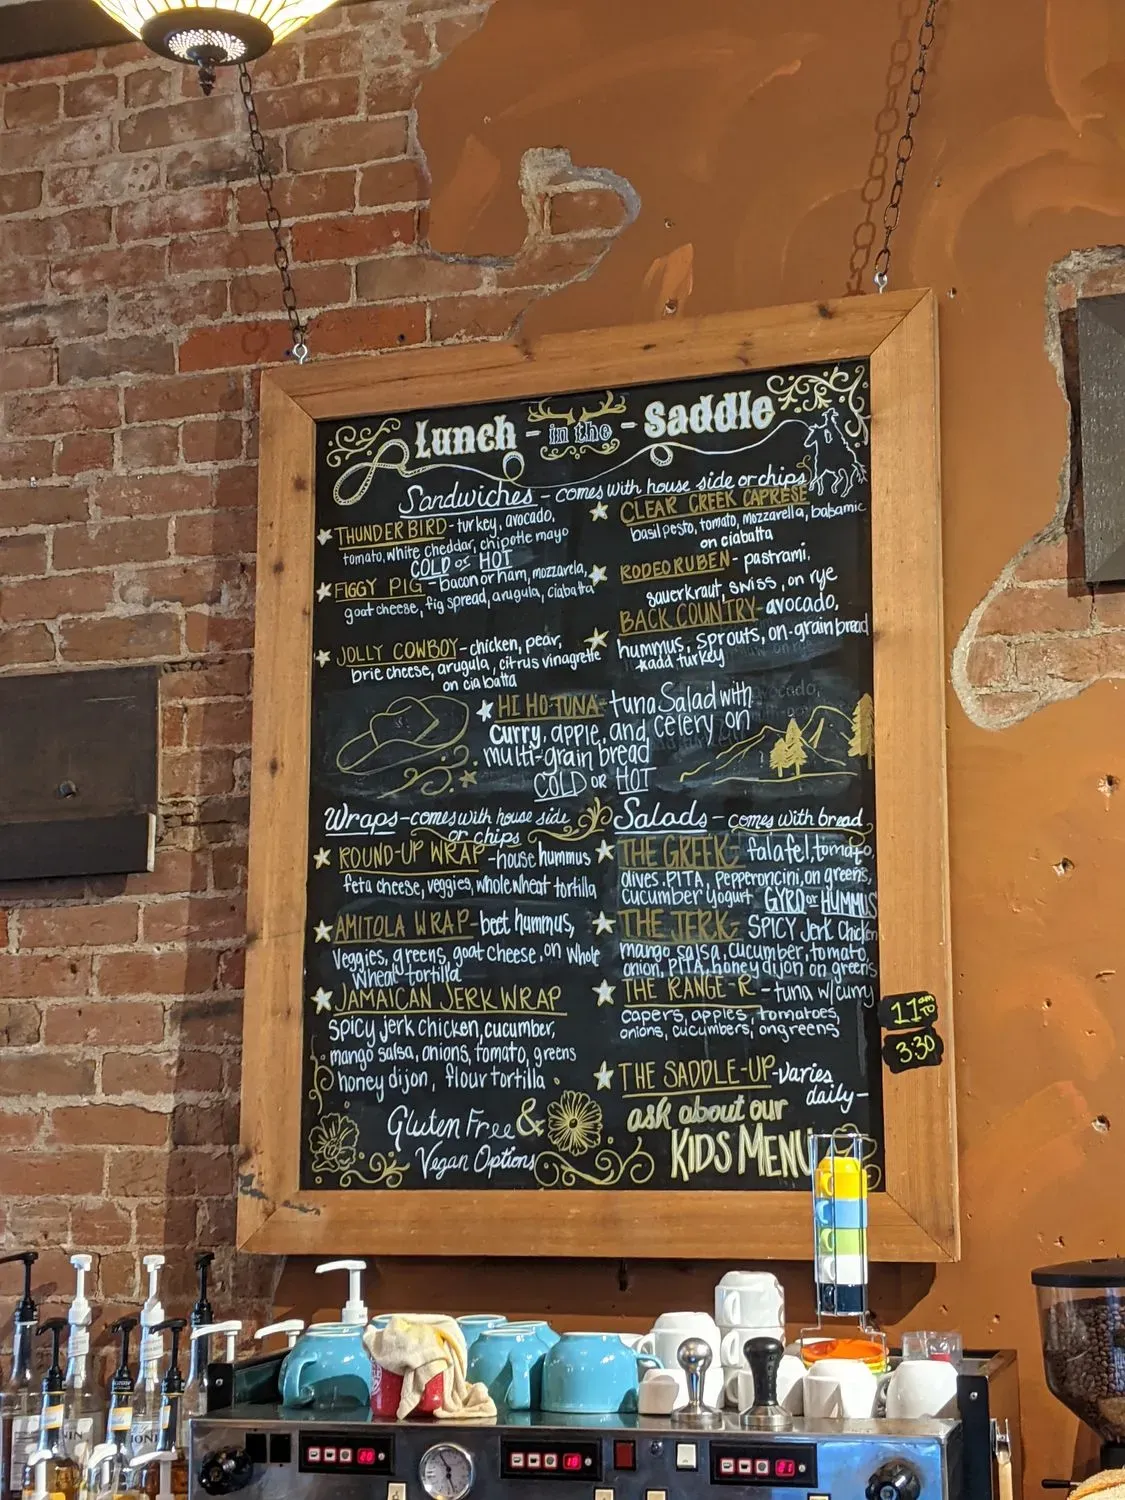 Lunch - in the - Saddle
Sandwiches - comes with house side or chips
THUNDERBIRD - turkey, avocado,
tomato, white cheddar, chipotle mayo
COLD or HOT
FIGGY PIG - bacon or ham, mozzarela,
goat cheese, fig spread, arugula, ciabatta
JOLLY COWBOY - chicken, pear,
brie cheese, arugula, citrus vinagrette
on ciabatta
CLEAR CREEK CAPRESE
basil pesto, tomato, mozzarella, balsamic
on ciabatta
RODEO RUBEN - pastrami,
sauerkraut, swiss, on rye
BACK COUNTRY - avocado,
hummus, sprouts, on-grain bread
add turkey
HI HO TUNA - tuna Salad with
curry, apple, and celery on
multi-grain bread
COLD OR HOT
Wraps - comes with house side
or chips
ROUND-UP WRAP - house hummus
feta cheese, veggies, whole wheat tortilla
AMITOLA WRAP - beet hummus,
veggies, greens, goat cheese, on whole
wheat tortilla
JAMAICAN JERK WRAP
spicy jerk chicken, cucumber,
mango salsa, onions, tomato, greens
honey dijon, flour tortilla
Gluten Free &
Vegan Options
Salads - comes with bread
THE GREEK: falafel, tomato,
olives, PITA, pepperoncini, on greens,
cucumber yogurt GYRO or HUMMUS
THE JERK: SPICY Jerk Chicken
mango salsa, cucumber, tomato,
onion, PITA, honey dijon on greens
THE RANGE-R - tuna w/curry
capers, apples, tomatoes,
onions, cucumbers, on greens
THE SADDLE-UP - varies
daily -
ask about our
KIDS MENU
11 am
TO
3:30